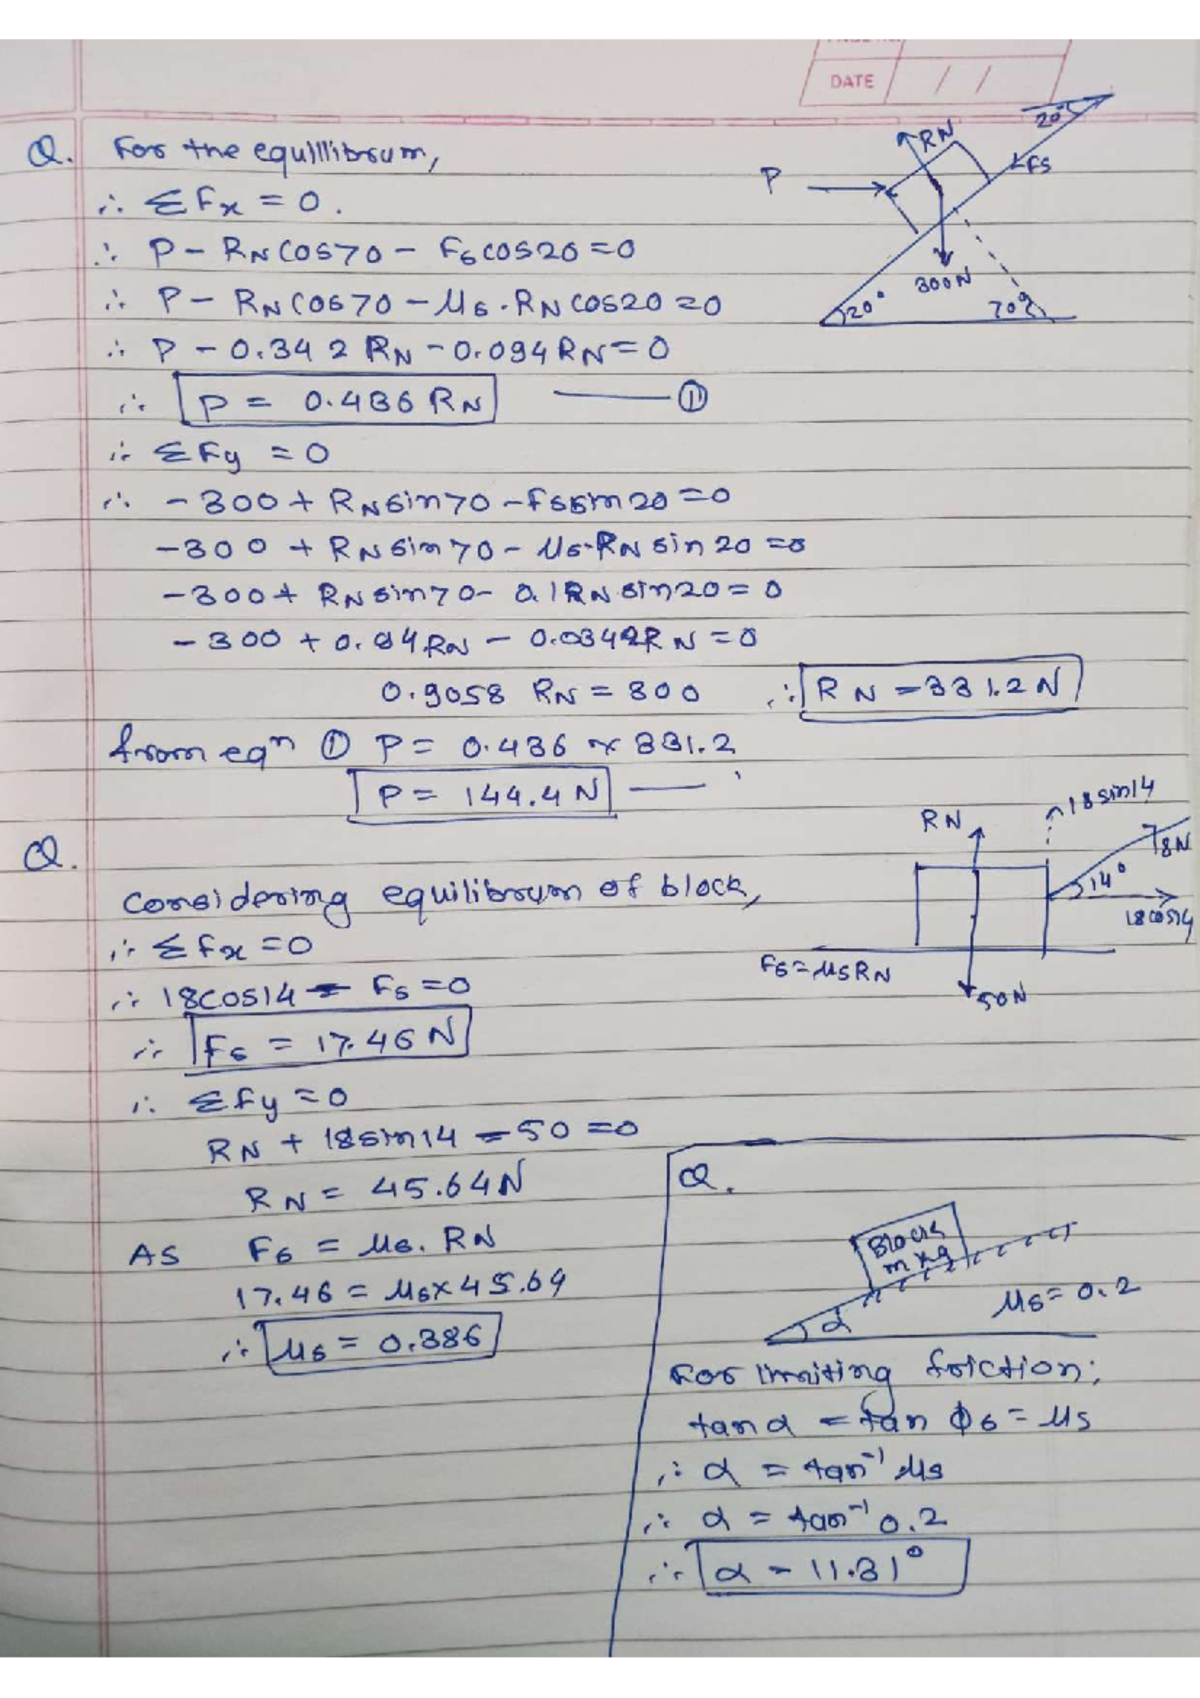 DATE / /
Q. For the equillibrum,
∴ ΣFx = 0.
∴ P - RN cos70 - Fs cos20 = 0
∴ P - RN cos70 - μs . RN cos20 = 0
∴ P - 0.342 RN - 0.094 RN = 0
∴ P = 0.436 RN ——— ①
∴ ΣFy = 0
∴ -300 + RN sin70 - Fs sin20 = 0
-300 + RN sin70 - μs.RN sin20 = 0
-300 + RN sin70 - 0.1RN sin20 = 0
-300 + 0.94RN - 0.0342RN = 0
0.9058 RN = 300 ∴ RN = 331.2N
from eqⁿ ① P = 0.436 × 331.2
P = 144.4 N ——
P
RN
20°
Fs
300N
20°
70°
Q.
considering equilibrum of block,
∴ ΣFx = 0
∴ 18cos14 - Fs = 0
∴ Fs = 17.46 N
∴ ΣFy = 0
RN + 18sin14 - 50 = 0
RN = 45.64N
As Fs = μs. RN
17.46 = μs × 45.64
∴ μs = 0.386
RN
18sin14
18N
14°
18cos14
Fs = μs RN
50N
Q.
Block
m kg
α
μs = 0.2
For limiting friction;
tan α = tan φs = μs
∴ α = tan⁻¹ μs
∴ α = tan⁻¹ 0.2
∴ α = 11.31°